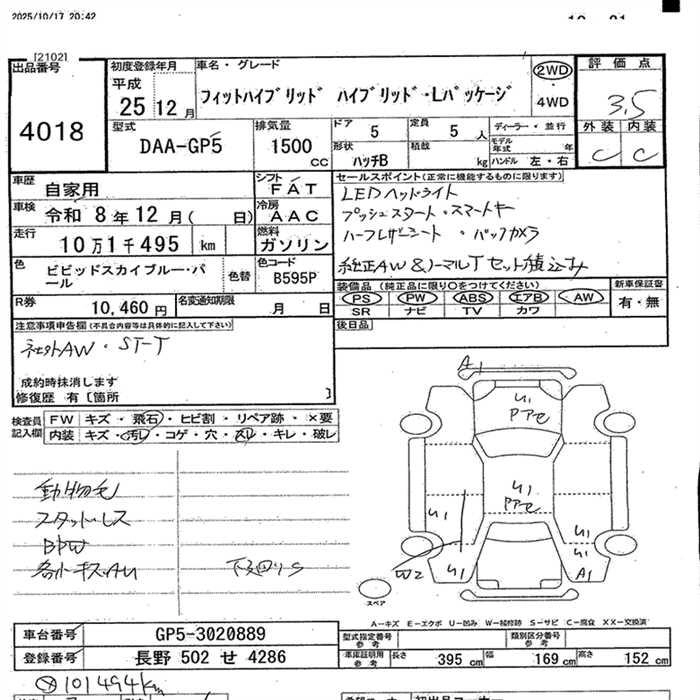 2025/10/17 20:42
[2102]
出品番号
4018
初度登録年月
平成
25 12 月
車名・グレード
フィットハイブリッド ハイブリッド・Lパッケージ
2WD
・
4WD
評価点
3.5
外装 内装
C C
型式
DAA-GP5
排気量
1500
cc
ドア 5
定員 5 人
形状 ハッチB
積載 kg
ディーラー・並行
モデル年式 年
ハンドル 左・右
車歴 自家用
車検 令和 8年12月( 日)
走行 10万1千495 km
色 ビビッドスカイブルー・パール
色替
シフト FAT
冷房 AAC
燃料 ガソリン
色コード B595P
R券 10,460 円
名変通知期限 月 日
セールスポイント(正常に機能するものに限ります)
LEDヘッドライト
プッシュスタート・スマートキー
ハーフレザーシート ・バックカメラ
純正AW&ノーマルTセット積込み
装備品 (純正品に限り○をつけてください)
PS PW ABS エアB AW
SR ナビ TV カワ
新車保証書
有・無
後日品
注意事項申告欄(不具合内容等は具体的に記入して下さい)
社外AW・ST-T
成約時抹消します
修復歴 有〔箇所 〕
検査員記入欄
FW キズ・飛石・ヒビ割・リペア跡・×要
内装 キズ・汚レ・コゲ・穴・スレ・キレ・破レ
動物毛
スタッドレス
各小キズAU
下廻りS
A1
U1
U1
U1
U1
U1
U1
A1
W2
スペア
A-キズ E-エクボ U-凹み W-補修跡 S-サビ C-腐食 XX-交換済
車台番号 GP5-3020889
登録番号 長野 502 せ 4286
型式指定番号
参考
類別区分番号
参考
車庫証明用
参考
長さ 395 cm
幅 169 cm
高さ 152 cm
101494km